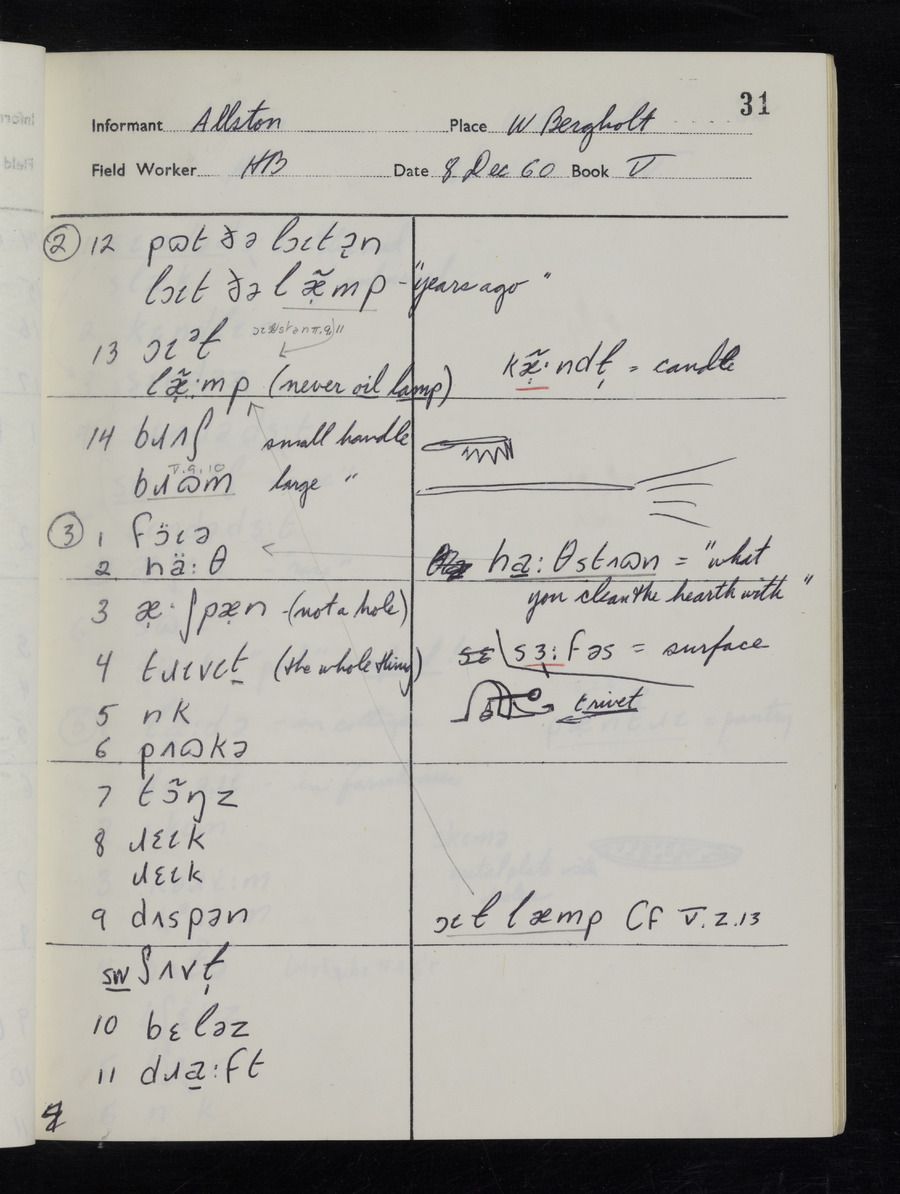 31
Informant Allston Place W Bergholt
Field Worker HB Date 8 Dec 60 Book V
② 12 pɷt ðə lɔɪt ə̣n
lɔɪt ðə læ̃mp - "years ago"
13 ɔɪəɫ
læ̣̃·mp (never oil lamp)
kæ̣̃·ndɫ̩ = candle
14 bɹʌʃ small handle
V.9.10
bɹɷm large "
③ 1 fɔ̈ɪə
2 hä:θ
ha̱:θstʌɷn = "what
you clean the hearth with"
3 æ̣·ʃpæ̣n - (not a hole)
4 tɹɪvɪṯ (the whole thing)
sɜ:fəs = surface
trivet
5 nk
6 pʌɷkə
7 tɔ̃ŋz
8 ɹɛɪk
ɹɛɪk
9 dʌspən
ɔɪɫ læmp Cf V.2.13
sw ʃʌvɫ̩
10 bɛ̣ləz
11 dɹa̱:ft